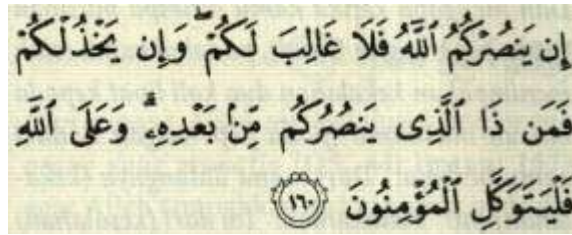 إِن يَنصُرْكُمُ ٱللَّهُ فَلَا غَالِبَ لَكُمْ ۖ وَإِن يَخْذُلْكُمْ
فَمَن ذَا ٱلَّذِى يَنصُرُكُم مِّنۢ بَعْدِهِۦ ۗ وَعَلَى ٱللَّهِ
فَلْيَتَوَكَّلِ ٱلْمُؤْمِنُونَ ١٦٠